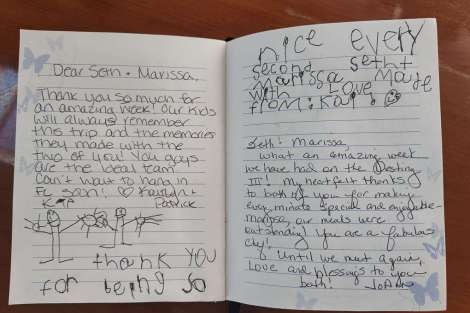 Dear Seth + Marissa,
Thank you so much for
an amazing week! Our kids
will always remember
this trip and the memories
they made with the
two of you! You guys
are the ideal team.
Can't wait to hang in
FL soon! ♡ Kaitlyn +
Patrick
thank YOU
for being so
nice every
second seth+
marissa Made
with LOVE
from: Kai
Seth + Marissa,
What an amazing week
we have had on the Destiny
III! My heartfelt thanks
to both of you for making
every minute special and enjoyable-
Marissa, our meals were
outstanding! You are a fabulous
chef!
Until we meet again,
Love and blessings to you
both! JoAnn